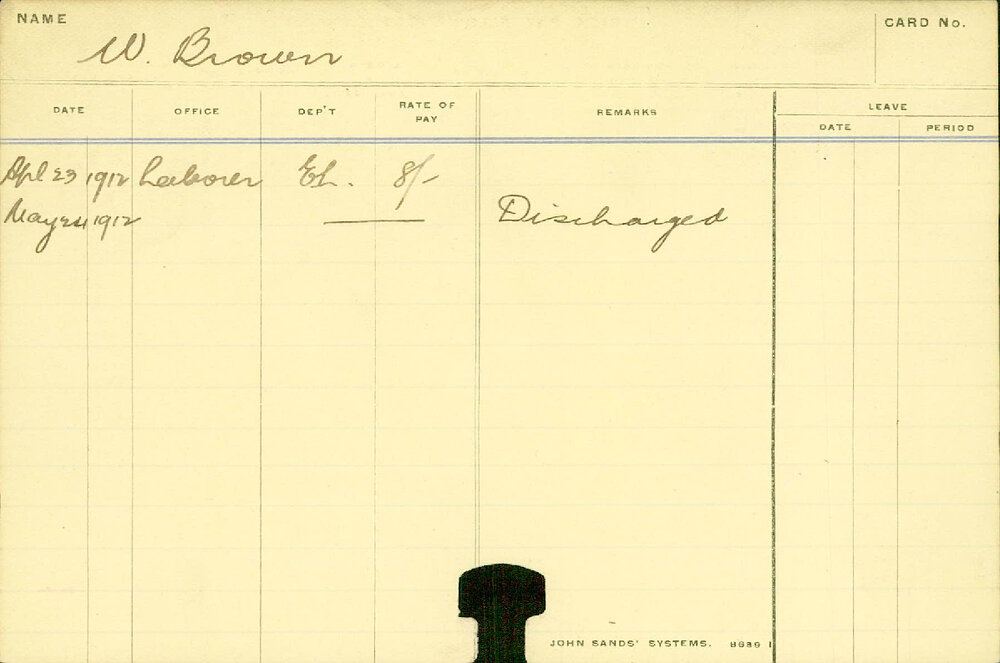 NAME
W. Brown
CARD No.
DATE OFFICE DEP'T RATE OF PAY REMARKS LEAVE
DATE PERIOD
Apl 23 1912 Laborer EL. 8/-
May 24 1912 Discharged
JOHN SANDS' SYSTEMS.